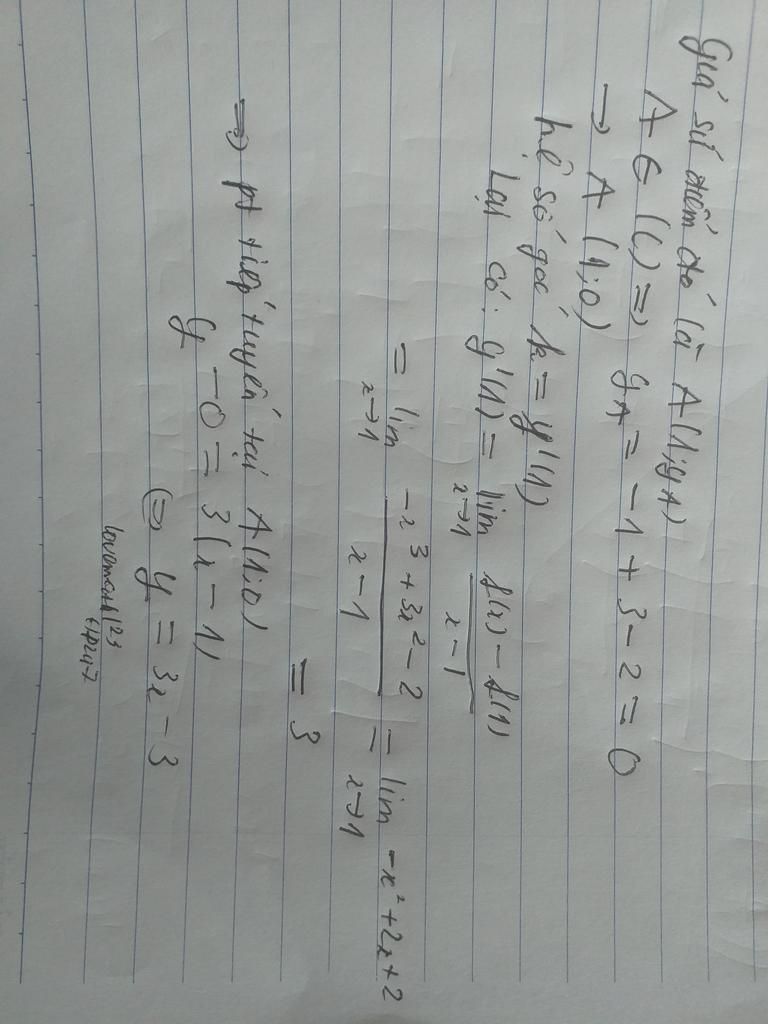 Giả sử điểm đó là A(1;yA)
A ∈ (C) => yA = -1 + 3 - 2 = 0
→ A (1;0)
hệ số góc k = y'(1)
Lại có: y'(1) = lim x→1 f(x) - f(1) / x - 1
= lim x→1 -x³ + 3x² - 2 / x - 1 = lim x→1 -x² + 2x + 2
= 3
=> pt tiếp tuyến tại A(1;0)
y - 0 = 3(x - 1)
(=) y = 3x - 3